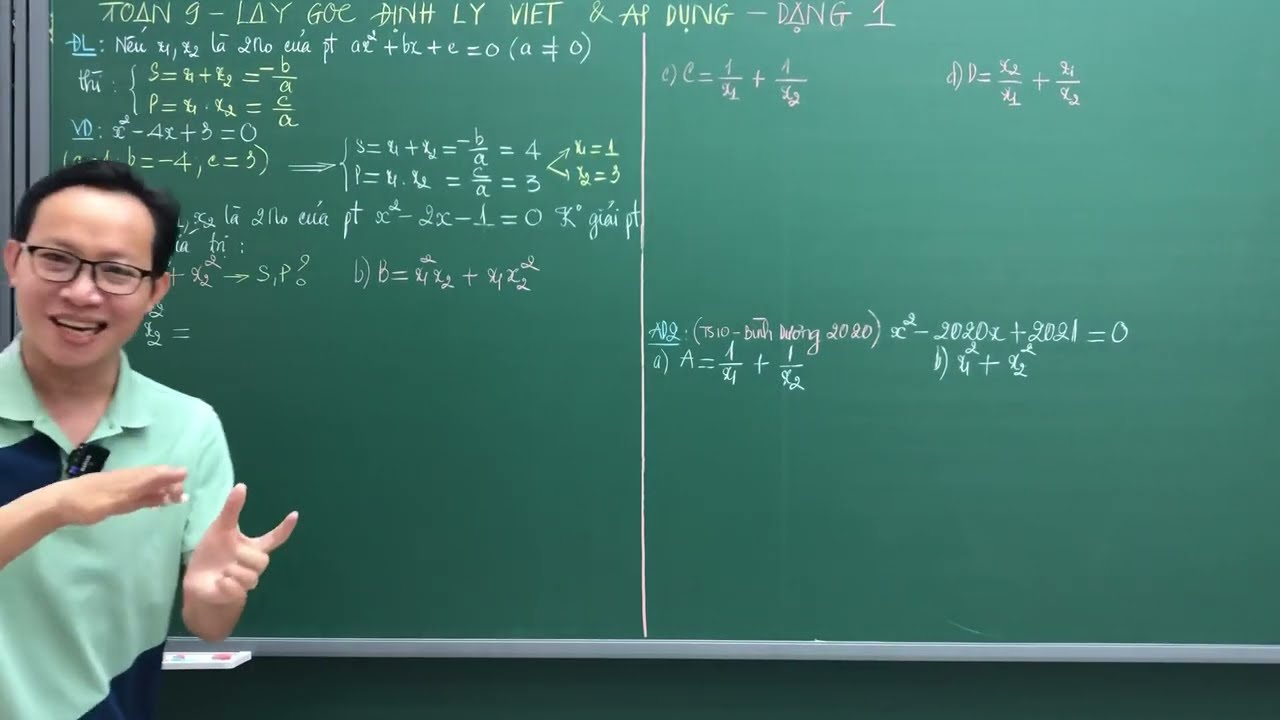 TOÁN 9 - LẤY GỐC ĐỊNH LÝ VIET & ÁP DỤNG - DẠNG 1
ĐL: Nếu x₁, x₂ là 2No của pt ax² + bx + c = 0 (a ≠ 0)
thì: { S = x₁ + x₂ = -b/a
P = x₁ . x₂ = c/a
VD: x² - 4x + 3 = 0
b = -4, c = 3) ⟹ { S = x₁ + x₂ = -b/a = 4
P = x₁ . x₂ = c/a = 3
x₁ = 1
x₂ = 3
x₂ là 2No của pt x² - 2x - 1 = 0 K° giải pt
trị:
+ x₂² → S, P?
b) B = x₁²x₂ + x₁x₂²
x₂² =
c) C = 1/x₁ + 1/x₂
d) D = x₂/x₁ + x₁/x₂
AD2: (TS10 - Bình Dương 2020) x² - 2020x + 2021 = 0
a) A = 1/x₁ + 1/x₂
b) x₁² + x₂²